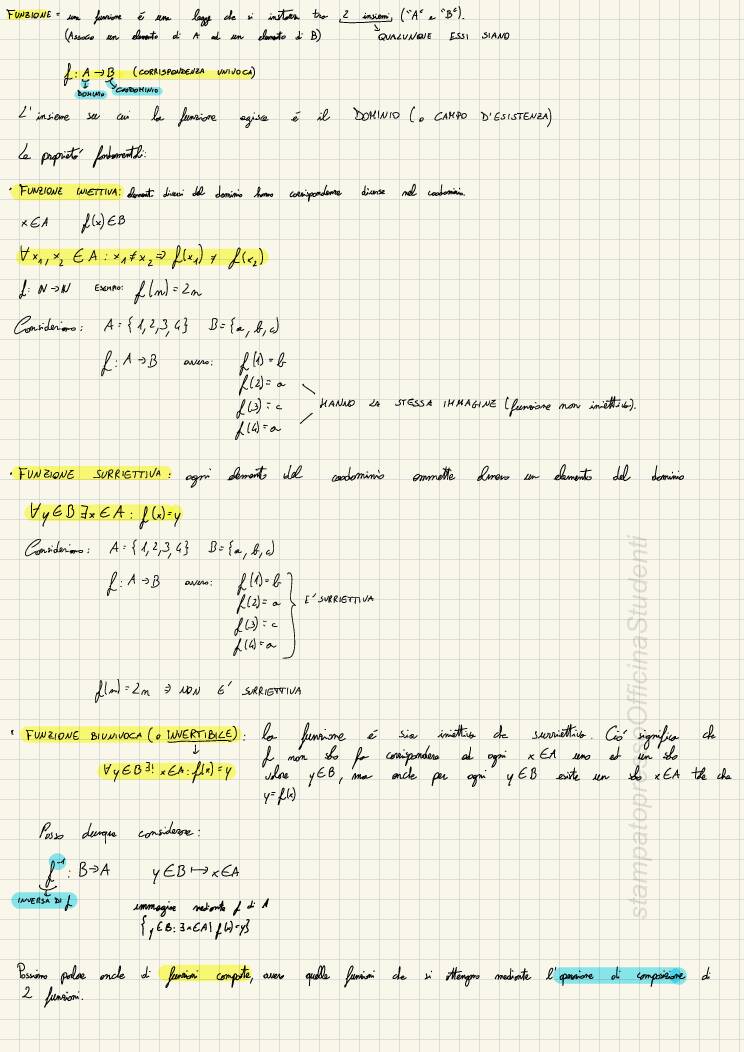 FUNZIONE = una funzione é una legge che si instaura tra 2 insiemi, ("A" e "B").
(Associo un elemento di A ad un elemento di B) QUALUNQUE ESSI SIANO
f: A → B (CORRISPONDENZA UNIVOCA)
DOMINIO CODOMINIO
L'insieme su cui la funzione agisce é il DOMINIO (o CAMPO D'ESISTENZA)
Le proprietá fondamentali:
· FUNZIONE INIETTIVA: elementi diversi del dominio hanno corrispondenze diverse nel codominio.
x∈A f(x)∈B
∀x₁, x₂ ∈ A : x₁ ≠ x₂ ⇒ f(x₁) ≠ f(x₂)
f: N→N ESEMPIO: f(n) = 2n
Consideriamo: A = {1,2,3,4} B = {a, b, c}
f: A → B ovvero: f(1) = b
f(2) = a
f(3) = c HANNO LA STESSA IMMAGINE (funzione non iniettiva).
f(4) = a
· FUNZIONE SURRIETTIVA: ogni elemento del codominio ammette almeno un elemento del dominio
∀y∈B ∃x∈A : f(x)=y
Consideriamo: A = {1,2,3,4} B = {a, b, c}
f: A → B ovvero: f(1) = b
f(2) = a E' SURRIETTIVA
f(3) = c
f(4) = a
f(n) = 2n ⇒ NON E' SURRIETTIVA
· FUNZIONE BIUNIVOCA (o INVERTIBILE): la funzione é sia iniettiva che surriettiva. Ció significa che
f non solo fa corrispondere ad ogni x∈A uno ed un solo
∀y∈B ∃! x∈A : f(x) = y valore y∈B, ma anche per ogni y∈B esiste un solo x∈A tale che
y = f(x)
Posso dunque considerare:
f⁻¹ : B→A y∈B ↦ x∈A
INVERSA DI f immagine mediante f di A
{y∈B: ∃x∈A | f(x)=y}
Possiamo parlare anche di funzioni composte, ovvero quelle funzioni che si ottengono mediante l'operazione di composizione di
2 funzioni.